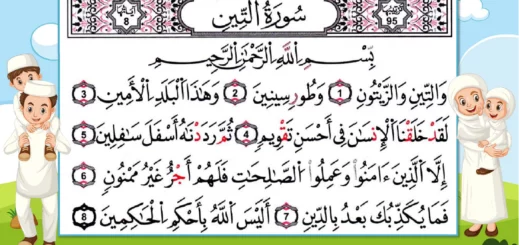 سُورَةُ التِّينِ
95
8
بِسْمِ اللَّهِ الرَّحْمَٰنِ الرَّحِيمِ
وَالتِّينِ وَالزَّيْتُونِ ١ وَطُورِ سِينِينَ ٢ وَهَٰذَا الْبَلَدِ الْأَمِينِ ٣
لَقَدْ خَلَقْنَا الْإِنسَانَ فِي أَحْسَنِ تَقْوِيمٍ ٤ ثُمَّ رَدَدْنَاهُ أَسْفَلَ سَافِلِينَ ٥
إِلَّا الَّذِينَ ءَامَنُوا وَعَمِلُوا الصَّالِحَاتِ فَلَهُمْ أَجْرٌ غَيْرُ مَمْنُونٍ ٦
فَمَا يُكَذِّبُكَ بَعْدُ بِالدِّينِ ٧ أَلَيْسَ اللَّهُ بِأَحْكَمِ الْحَاكِمِينَ ٨